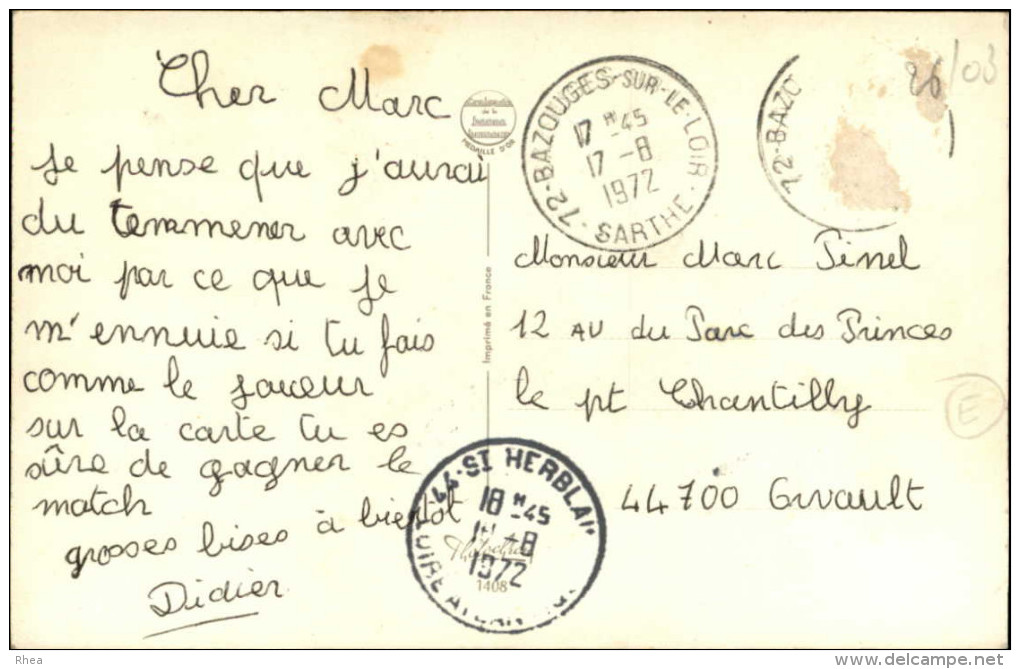 Cher Marc
je pense que j'aurai
du temmener avec
moi par ce que je
m'ennuie si tu fais
comme le joueur
sur la carte tu es
sûre de gagner le
match
grosses bises à bientôt
Didier
MEDAILLE D'OR
Imprimé en France
1408
72-BAZOUGES-SUR-LE-LOIR
17 H -45
17 -8
1972
SARTHE
72-BAZO
26/03
Monsieur Marc Pinel
12 AU du Parc des Princes
le pt Chantilly
44700 Orvault
E
44-ST HERBLAI
18 H -45
-8
1972
LOIRE
Rhea
www.delcampe.net